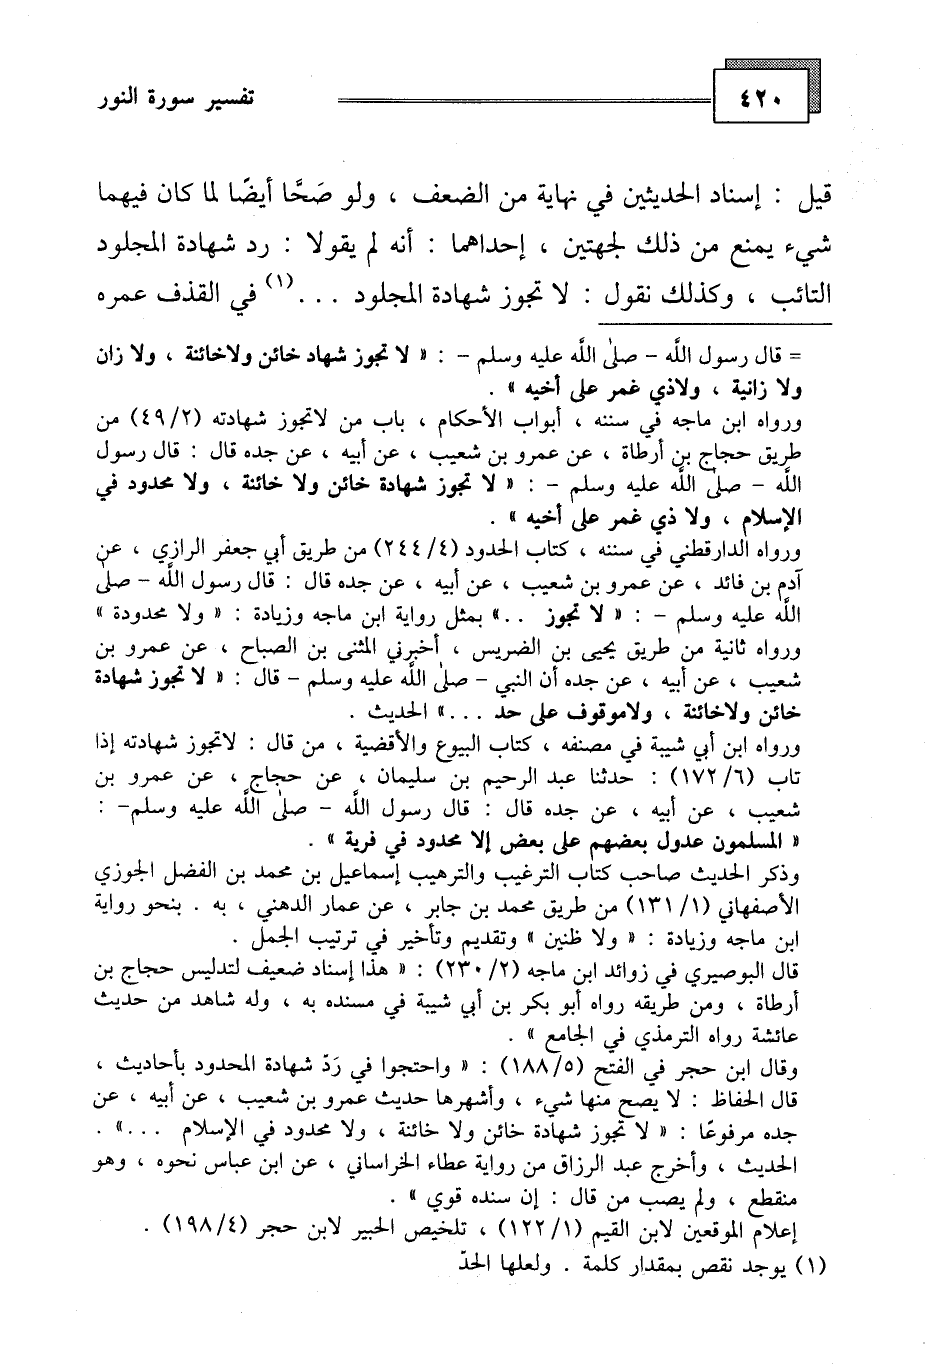 ٤٢٠ تفسير سورة النور
قيل : إسناد الحديثين في نهاية من الضعف ، ولو صَحَّا أيضًا لما كان فيهما
شيء يمنع من ذلك لجهتين ، إحداهما : أنه لم يقولا : رد شهادة المجلود
التائب ، وكذلك نقول : لا تجوز شهادة المجلود ...(١) في القذف عمره
= قال رسول اللَّه – صلى اللَّه عليه وسلم – : « لا تجوز شهاد خائن ولاخائنة ، ولا زان
ولا زانية ، ولاذي غمر على أخيه » .
ورواه ابن ماجه في سننه ، أبواب الأحكام ، باب من لاتجوز شهادته (٤٩/٢) من
طريق حجاج بن أرطاة ، عن عمرو بن شعيب ، عن أبيه ، عن جده قال : قال رسول
اللَّه – صلى اللَّه عليه وسلم – : « لا تجوز شهادة خائن ولا خائنة ، ولا محدود في
الإسلام ، ولا ذي غمر على أخيه » .
ورواه الدارقطني في سننه ، كتاب الحدود (٢٤٤/٤) من طريق أبي جعفر الرازي ، عن
آدم بن فائد ، عن عمرو بن شعيب ، عن أبيه ، عن جده قال : قال رسول اللَّه – صلى
اللَّه عليه وسلم – : « لا تجوز ..» بمثل رواية ابن ماجه وزيادة : « ولا محدودة »
ورواه ثانية من طريق يحيى بن الضريس ، أخبرني المثنى بن الصباح ، عن عمرو بن
شعيب ، عن أبيه ، عن جده أن النبي – صلى اللَّه عليه وسلم – قال : « لا تجوز شهادة
خائن ولاخائنة ، ولاموقوف على حد ...» الحديث .
ورواه ابن أبي شيبة في مصنفه ، كتاب البيوع والأقضية ، من قال : لاتجوز شهادته إذا
تاب (١٧٢/٦) : حدثنا عبد الرحيم بن سليمان ، عن حجاج ، عن عمرو بن
شعيب ، عن أبيه ، عن جده قال : قال رسول اللَّه – صلى اللَّه عليه وسلم– :
« المسلمون عدول بعضهم على بعض إلا محدود في فرية » .
وذكر الحديث صاحب كتاب الترغيب والترهيب إسماعيل بن محمد بن الفضل الجوزي
الأصفهاني (١٣١/١) من طريق محمد بن جابر ، عن عمار الدهني ، به . بنحو رواية
ابن ماجه وزيادة : « ولا ظنين » وتقديم وتأخير في ترتيب الجمل .
قال البوصيري في زوائد ابن ماجه (٢٣٠/٢) : « هذا إسناد ضعيف لتدليس حجاج بن
أرطاة ، ومن طريقه رواه أبو بكر بن أبي شيبة في مسنده به ، وله شاهد من حديث
عائشة رواه الترمذي في الجامع » .
وقال ابن حجر في الفتح (١٨٨/٥) : « واحتجوا في رَدّ شهادة المحدود بأحاديث ،
قال الحفاظ : لا يصح منها شيء ، وأشهرها حديث عمرو بن شعيب ، عن أبيه ، عن
جده مرفوعًا : « لا تجوز شهادة خائن ولا خائنة ، ولا محدود في الإسلام ...» .
الحديث ، وأخرج عبد الرزاق من رواية عطاء الخراساني ، عن ابن عباس نحوه ، وهو
منقطع ، ولم يصب من قال : إن سنده قوي » .
إعلام الموقعين لابن القيم (١٢٢/١) ، تلخيص الحبير لابن حجر (١٩٨/٤) .
(١) يوجد نقص بمقدار كلمة . ولعلها الحدّ